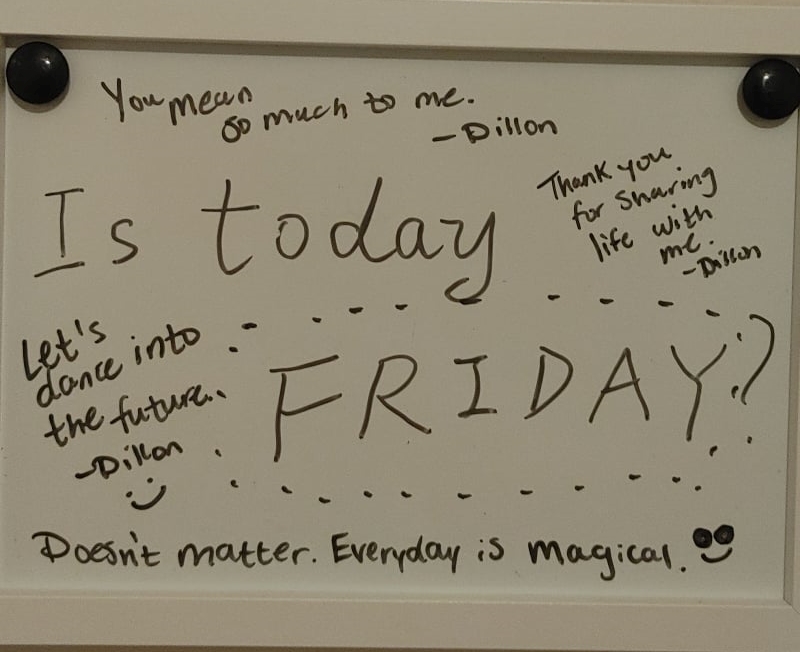 You mean
so much to me.
-Dillon
Thank you
for sharing
life with
me.
-Dillon
Is today
FRIDAY?
Let's
dance into
the future..
-Dillon
Doesn't matter. Everyday is magical.